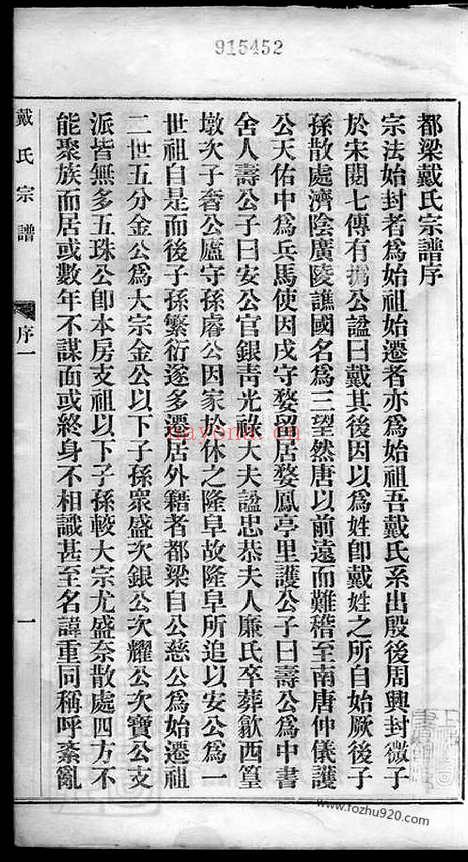 915452
都梁戴氏宗譜序
宗法始封者為始祖始遷者亦為始祖吾戴氏系出殷後周興封微子
於宋閱七傳有撝公諡曰戴其後因以為姓即戴姓之所自始厥後子
孫散處濟陰廣陵譙國名為三望然唐以前遠而難稽至南唐仲儀護
公天佑中為兵馬使因戍守婺留居婺鳳亭里護公子曰壽公為中書
舍人壽公子曰安公官銀青光祿大夫諡忠恭夫人廉氏卒葬歙西篁
墩次子奢公廬守孫睿公因家於休之隆阜故隆阜所追以安公為一
世祖自是而後子孫繁衍遂多遷居外籍者都梁自公慈公為始遷祖
二世五分金公為大宗金公以下子孫眾盛次銀公次耀公次寶公支
派皆無多五珠公即本房支祖以下子孫較大宗尤盛奈散處四方不
能聚族而居或數年不謀面或終身不相識甚至名諱重同稱呼紊亂
戴氏宗譜
序一
一
nayona.cn
www.fozhu920.com